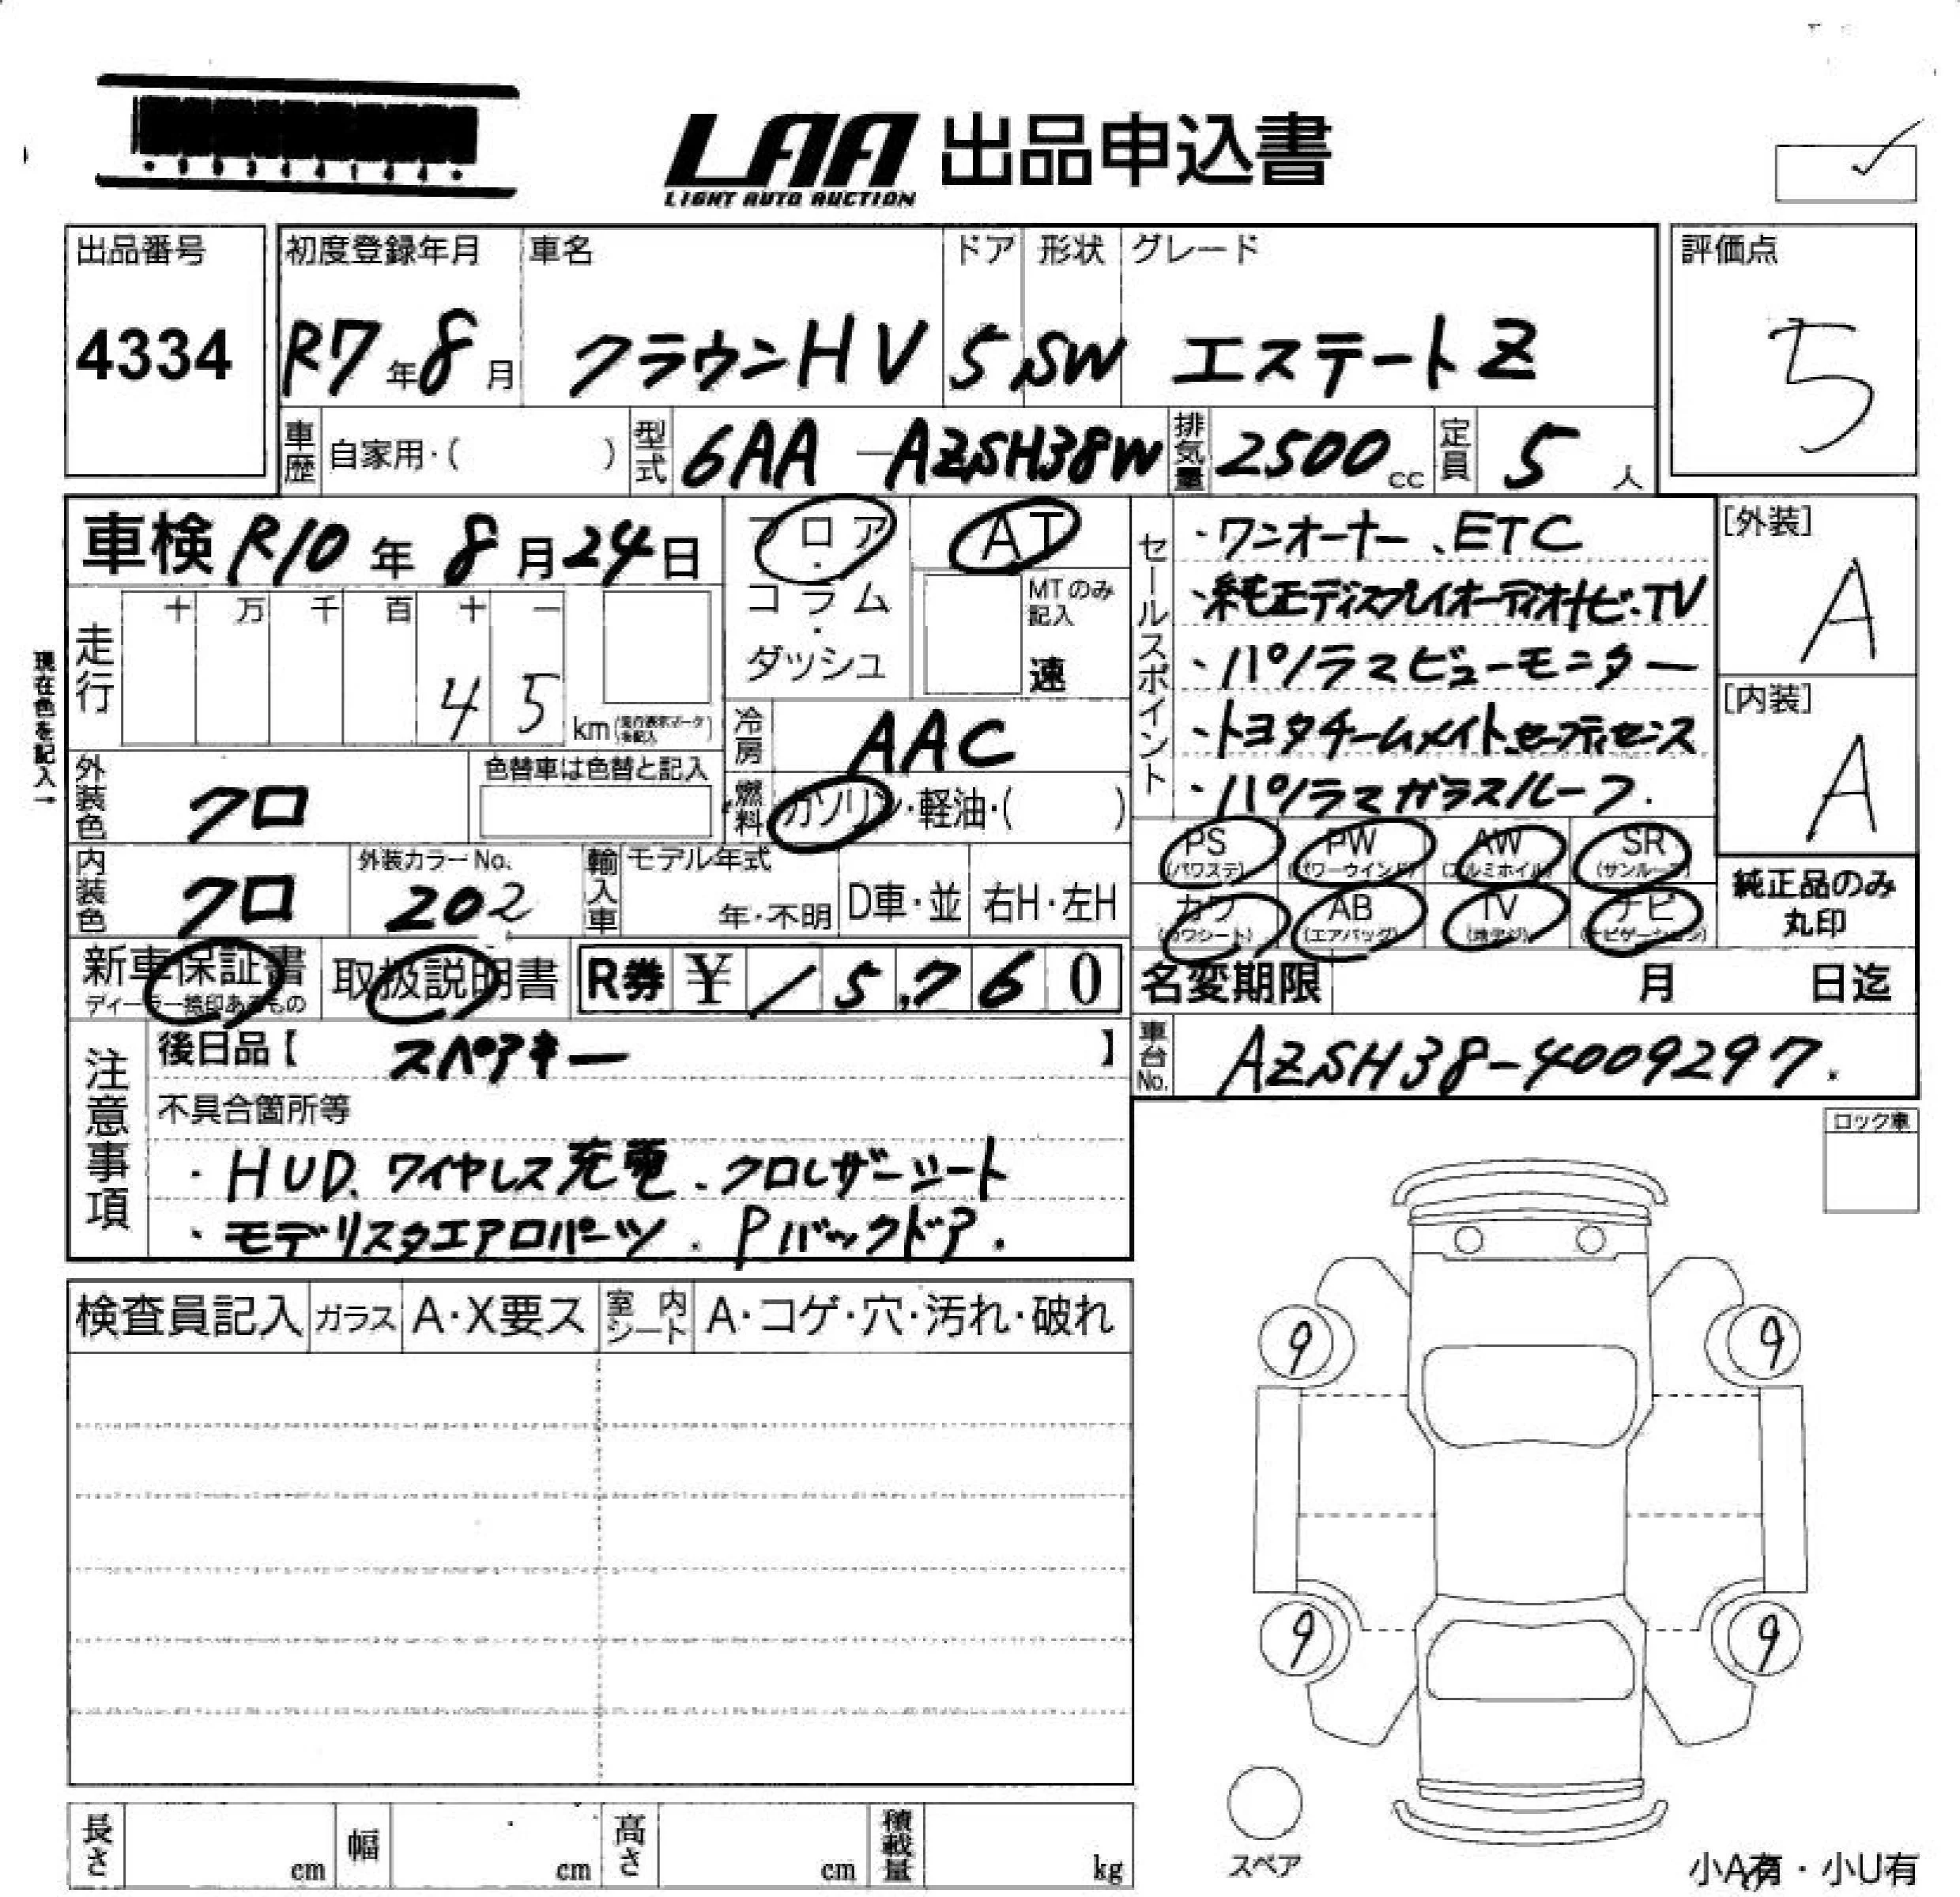 LAA 出品申込書
LIGHT AUTO AUCTION
出品番号
4334
初度登録年月
R7年8月
車名
クラウンHV
ドア
5
形状
SW
グレード
エステートZ
評価点
5
車歴 自家用・( )
型式 6AA-AZSH38W
排気量 2500cc
定員 5人
車検 R10年8月24日
フロア・コラム・ダッシュ
AT
MTのみ記入
速
セールスポイント
・ワンオーナー、ETC
・純正ディスプレイオーディオナビ・TV
・パノラマビューモニター
・トヨタチームメイト、セーフティセンス
・パノラマガラスルーフ.
[外装]
A
[内装]
A
現在色を記入→
走行 十 万 千 百 十 一
45 km
冷房 AAC
外装色 クロ
色替車は色替と記入
燃料 ガソリン・軽油・( )
内装色 クロ
外装カラーNo.
202
輸入車 モデル年式
年・不明 D車・並 右H・左H
PS (パワステ) PW (パワーウインド) AW (アルミホイル) SR (サンルーフ)
カワ (カワシート) AB (エアバッグ) TV (地デジ) ナビ (ナビゲーション)
純正品のみ
丸印
新車保証書
ディーラー捺印あるもの
取扱説明書
R券 ¥ 15,760
名変期限 月 日迄
注意事項
後日品【 スペアキー 】
車台No. AZSH38-4009297.
不具合箇所等
・HUD、ワイヤレス充電、クロレザーシート
・モデリスタエアロパーツ、Pバックドア.
ロック車
検査員記入 ガラス A・X要ス 室内シート A・コゲ・穴・汚れ・破れ
9 9
9 9
スペア
長さ cm 幅 cm 高さ cm 積載量 kg
小A有・小U有